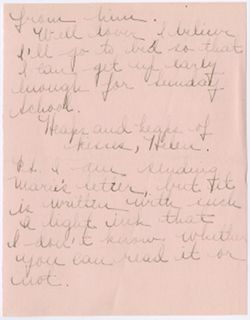 from him.
Well lover I believe
I'll go to bed so that
I can get up early
enough for Sunday
School.
Heaps and heaps of
kisses, Helen.
P.S. I am sending
Marie's letter, but it
is written with such
a light ink that
I don't know whether
you can read it or
not.